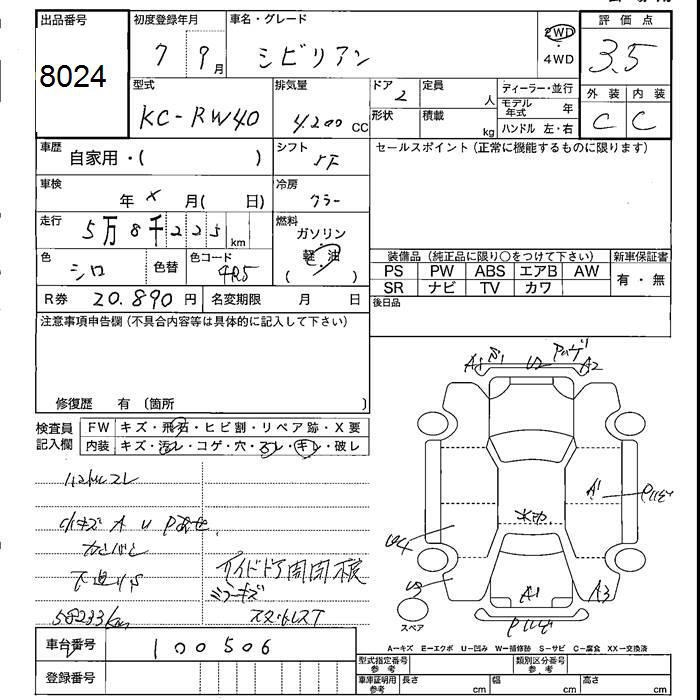 出品番号 初度登録年月 車名・グレード 2WD 評価点
8024 7 9月 シビリアン ・ 4WD 3.5
型式 排気量 ドア 2 定員 人 ディーラー・並行 外装 内装
KC-RW40 4200 CC 形状 積載 kg モデル年式 年 C C
ハンドル 左・右
車歴 自家用・( ) シフト 5F セールスポイント (正常に機能するものに限ります)
車検 年 × 月( 日) 冷房 クラー
走行 5万8千225km 燃料 ガソリン
軽油
( )
色 シロ 色替 色コード 4R5
装備品 (純正品に限り○をつけて下さい) 新車保証書
PS PW ABS エアB AW 有・無
SR ナビ TV カワ
R券 20.890円 名変期限 月 日 後日品
注意事項申告欄 (不具合内容等は具体的に記入して下さい)
修復歴 有 (箇所 )
検査員 FW キズ・飛石・ヒビ割・リペア跡・X要
記入欄 内装 キズ・汚レ・コゲ・穴・スレ・キレ・破レ
A1 U2 A2
A1
U4
A1 A3
小キズ A U
58233km
サイドドア開閉
ミラーキズ
スタッドレスT
スペア
A-キズ E-エクボ U-凹み W-補修跡 S-サビ C-腐食 XX-交換済
車台番号 100506
登録番号
型式指定番号 参考 類別区分番号 参考
車庫証明用 参考 長さ cm 幅 cm 高さ cm